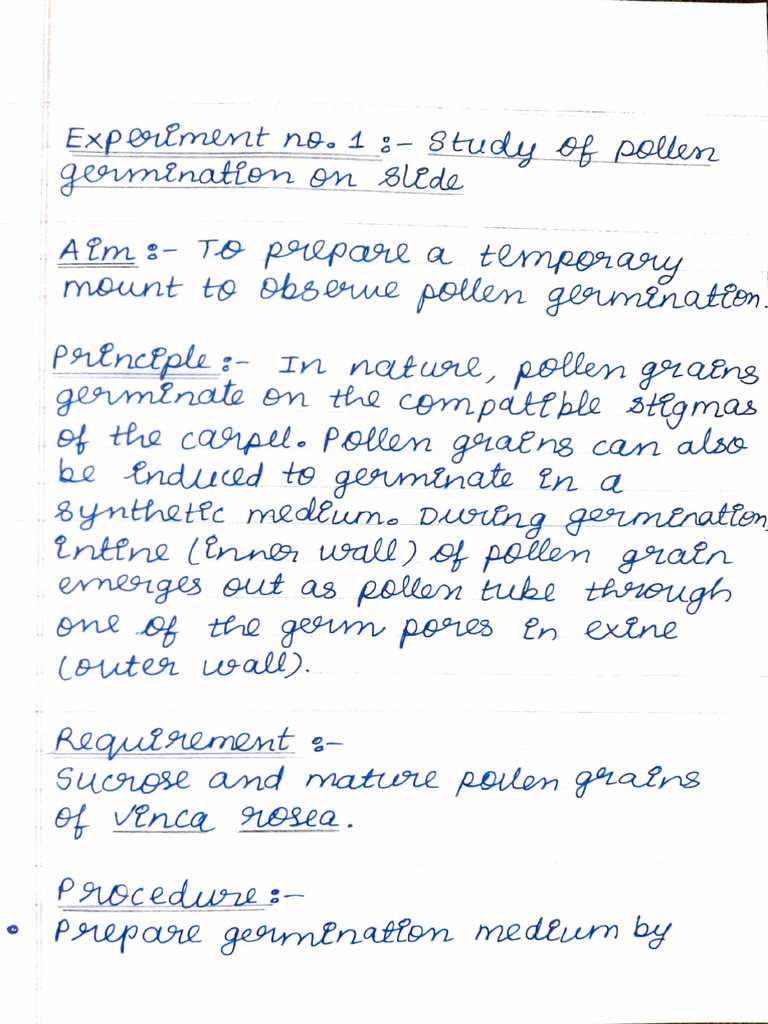 Experiment no. 1 :- Study of pollen
germination on slide
Aim :- To prepare a temporary
mount to observe pollen germination.
Principle :- In nature, pollen grains
germinate on the compatible stigmas
of the carpel. Pollen grains can also
be induced to germinate in a
synthetic medium. During germination,
intine (inner wall) of pollen grain
emerges out as pollen tube through
one of the germ pores in exine
(outer wall).
Requirement :-
Sucrose and mature pollen grains
of vinca rosea.
Procedure :-
• Prepare germination medium by